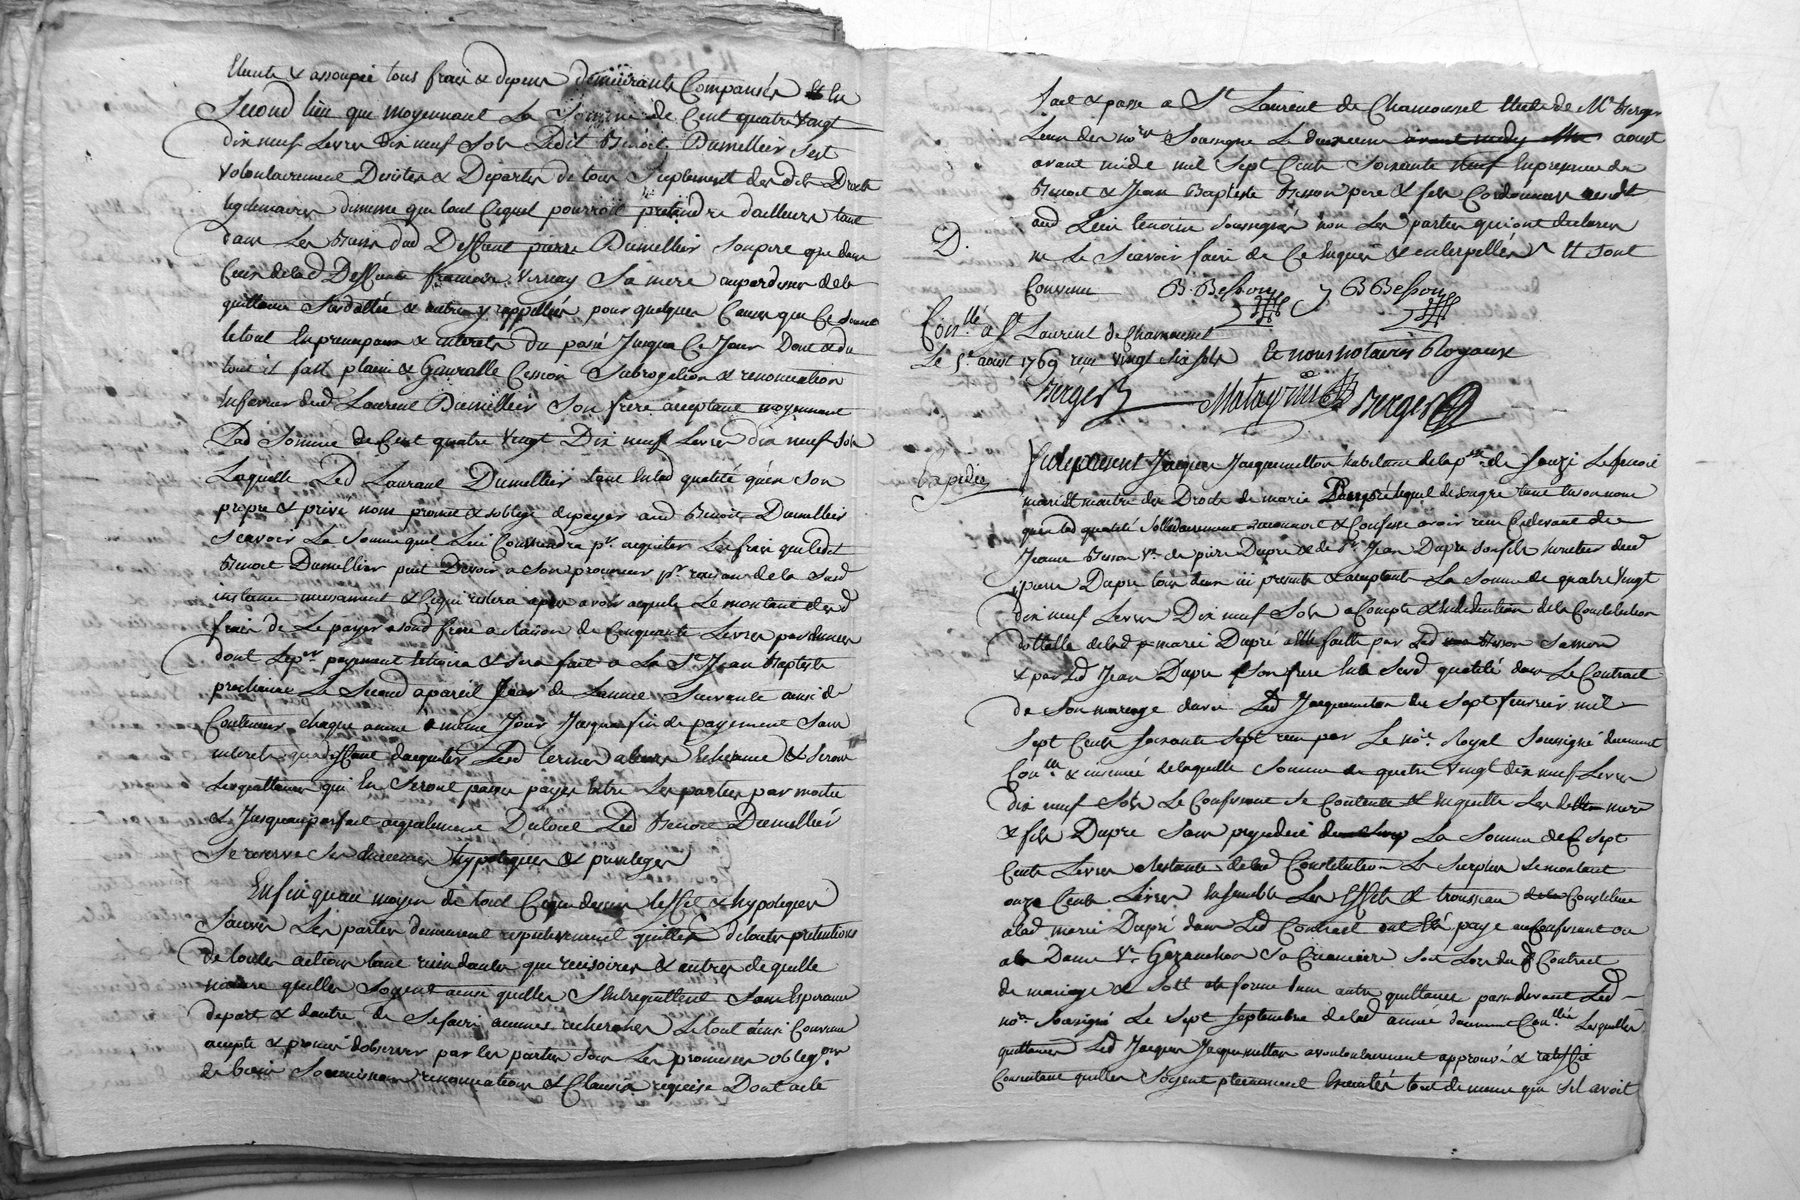 Eteinte & assoupie tous fraix & depens demeurants Compansés & En
Second lieu que moyennant La Somme de Cent quatre vingt
dix neuf Livres dix neuf Sols Ledit Benoît Dumellier sest
volontairement Desister & Departer de tous Suplement des dits Droits
legitimaires dimême que tout Cequil pourroit pretendre dailleurs tant
dans Les Biens dud Deffunt pierre Dumellier Son pere que dans
Ceux de lad Deffunte françoise Vernay Sa mere aupardessus de la
quittance Surdattée & autres y rappellés pour quelques Causes que Ce Soient
le tout En principaux & interets du passé Jusqua Ce Jour Dont & du
tout il fait plaine & Generalle Cession Subrogation & renonciation
En faveur dud Laurent Dumellier Son frere acceptant moyennant
Lad Somme de Cent quatre vingt Dix neuf Livres dix neuf Sols
Laquelle Led Laurant Dumellier tant En lad qualité qu'en Son
propre & privé nom promet & soblige de payer aud Benoît Dumellier
Scavoir La Somme quil Lui Conviendra pr. acquiter Les fraix que ledit
Benoît Dumellier peut Devoir a Son procureur pr. raison de la Susd
instance incessament & Cequi restera apres avoir acquité Le montant desd
fraix de Le payer a Sond frere a Raison de Cinquante Livres par année
dont Le per. payement Echoira & Sera fait a La St. Jean Baptiste
prochaine Le Second a pareil Jour de Lannée Suivante ainsi de
Continuer chaque année a même Jour Jusqua fin de payement Sans
interets qua deffaut dacquiter Lesd termes a leurs Echeance & Seront
Les quittances qui En Seront passés payés Entre Les parties par moitié
& Jusqu'au parfait acquittement Du tout Led Benoît Dumellier
Se reserve Ses anciennes hypoteques & privileges
Enfin qu'au moyen de tout Ceque dessus L'effet & hypoteques
Sauves Les parties demeurent respectivement quittes de toutes pretentions
de toutes actions tant rescindantes que rescisoires & autres de quelle
nature quelles Soyent ainsi quelles S'Entrequittent Sans Esperance
de part & dautre de Se faire aucunes recherches Le tout ainsi Convenu
accepté & promis d'observer par Les parties Sous Les promesses obligons
de biens Soumissions renonciations & Clauses requise Dont acte
fait & passé a St. Laurent de Chamousset Etude de Me. Berger
Lun des nores. Soussigné Le deuxieme aoust
avant midi mil Sept Cents Soixante neuf En presence de
Benoit & Jean Baptiste Besson pere & fils Cordonniers aud St
aud Lieu temoins Soussignés non Les parties qui ont declarer
ne Le Scavoir faire de Ce Enquis & interpellés Et Sont
D.
Convenu B. Besson J B Besson
Con.llé a St. Laurent de Chamousset
Le 5e. aoust 1769 reçu vingt Six Sols Et nous notaires Royaux
Berger Matagrin Berger
Expediés
Furent present Jacques Jacquemetton habitant de la psse. de Souzi Le Benoit
mari & maitre des Droits de marie Dupré lequel de son gré tant En son nom
qu'en lad qualité Sollidairement reconnoit & Confesse avoir reçu Cydevant de
Jeanne Besson Ve. de pierre Dupré & de Sr. Jean Dupré Son fils heritier dud
pierre Dupré tous deux ici presents & acceptants La Somme de quatre vingt
dix neuf Livres Dix neuf Sols a Compte & En deduction de la Constitution
dottalle de lad marie Dupré a Elle faitte par Lad Besson Sa mere
& par Led Jean Dupré Son frere En la Susd qualité dans Le Contract
de Son mariage avec Led Jacquemetton du Sept fevrier mil
Sept Cents Soixante Sept reçu par Le nore. Royal Soussigné duement
Con.llé & insinué de laquelle Somme de quatre vingt dix neuf Livres
dix neuf Sols Le Confessant Se Contente & En quitte Lesd mere
& fils Dupré Sans prejudice La Somme de Sept
Cents Livres restante de lad Constitution Le Surplus Se montant
onze Cents Livres Ensemble Les Effets & trousseau Constitué
a lad marie Dupré dans Led Contract ont Eté payé au Confessant ou
a la Dame Ve. Gozanchon Sa Creanciere Soit Lors dud Contract
de mariage & Soit En forme dune autre quittance passé devant Led
nore. Soussigné Le Sept Septembre de lad année duement Con.llée Lesquelles
quittances Led Jacques Jacquemetton a volontairement approuvé & ratiffié
Consentant quelles Soyent pleinement Executés tout de meme que Sil avoit